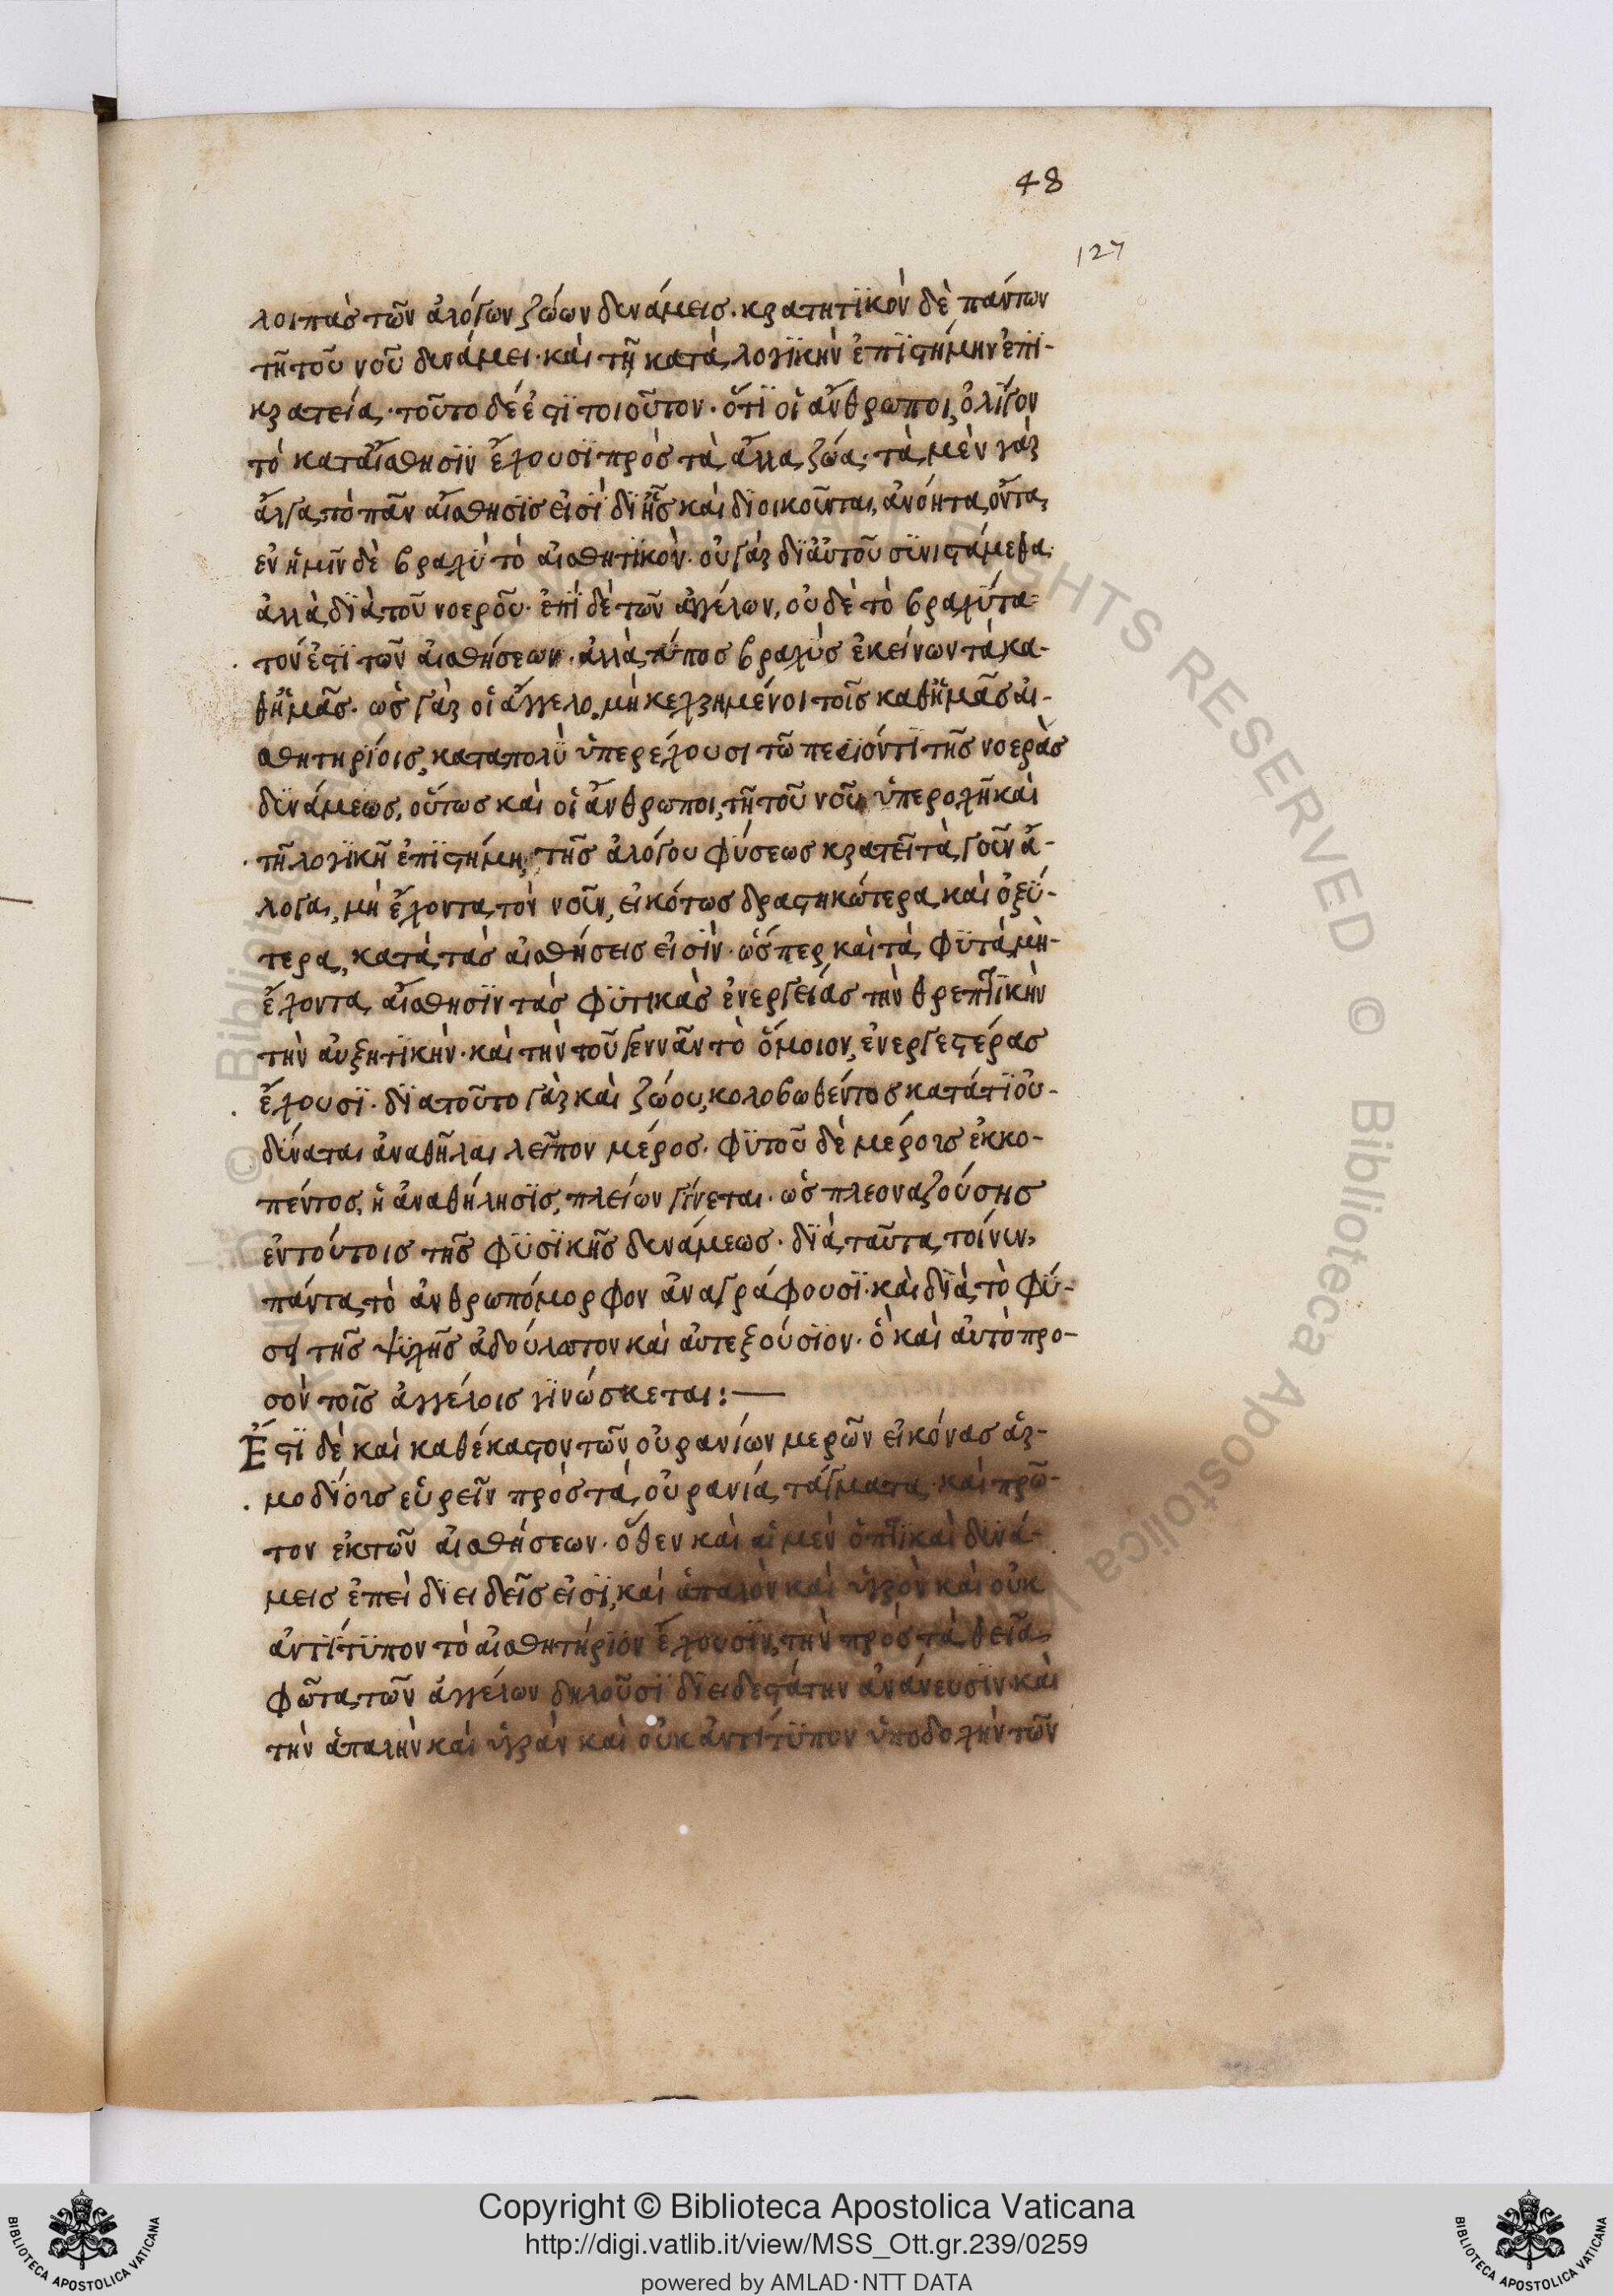 48
127
λοιπὰσ τῶν ἀλόγων ζώων δυνάμεισ· κρατητϊκὸν δὲ πάντων
τῆ τοῦ νοῦ δυνάμει· καὶ τῆ κατὰ λογϊκὴν ἐπϊστήμην ἐπι-
κρατεία· τοῦτο δέ ἐστϊ τοιοῦτον· ὅτϊ οἱ ἄνθρωποι, ὀλΐγον
τὸ κατ' αἴσθησϊν ἔχουσϊ πρὸσ τὰ ἄλλα ζῶα· τὰ μὲν γὰρ
ἄλογα, τὸ πᾶν αἴσθησϊσ εἰσὶ δι' ἧσ καὶ δϊοικοῦνται, ἀνόητα ὄντα,
ἐν ἡμῖν δὲ βραχὺ τὸ αἰσθητϊκὸν· οὐ γὰρ δϊ αὐτοῦ συνιστάμεθα
ἀλλὰ δϊὰ τοῦ νοεροῦ· ἐπὶ δὲ τῶν ἀγγέλων, οὐδὲ τὸ βραχύτα-
τόν ἐστϊ τῶν αἰσθήσεων· ἀλλὰ τύποσ βραχὺσ ἐκείνων τὰ κα-
θ' ἡμᾶσ· ὡσ γὰρ οἱ ἄγγελοι μὴ κεχρημένοι τοῖσ καθ' ἡμᾶσ αἰ-
σθητηρίοισ, καταπολὺ ὑπερέχουσι τῶ περϊόντϊ τῆσ νοερᾶσ
δυνάμεωσ, οὕτωσ καὶ οἱ ἄνθρωποι, τῆ τοῦ νοῦ ὑπεροχῆ καὶ
τῆ λογϊκῆ ἐπϊστήμη, τῆσ ἀλόγου φύσεωσ κρατεῖ τὰ γοῦν ἄ-
λογα, μὴ ἔχοντα τὸν νοῦν, εἰκότωσ δραστηκώτερα καὶ ὀξύ-
τερα, κατὰ τὰσ αἰσθήσεισ εἰσὶν· ὥσπερ καὶ τὰ φϋτὰ μὴ-
ἔχοντα αἴσθησϊν τὰσ φϋτικὰσ ἐνεργείασ τὴν θρεπτϊκὴν
τὴν αὐξητϊκὴν· καὶ τὴν τοῦ γεννᾶν τὸ ὅμοιον, ἐνεργεστέρασ
ἔχουσϊ· δϊατοῦτο γὰρ καὶ ζώου, κολοβωθέντοσ κατάτϊ οὐ-
δύναται ἀναθῆλαι λεῖπον μέροσ· φϋτοῦ δὲ μέρουσ ἐκκο-
πέντοσ, ἡ ἀναθήλησϊσ, πλείων γίνεται· ὡσ πλεοναζούσησ
ἐντούτοισ τῆσ φϋσϊκῆσ δυνάμεωσ· δϊὰ ταῦτα τοίνυν
πάντα τὸ ἀνθρωπόμορφον ἀναγράφουσϊ· καὶ δϊὰ τὸ φύ-
σει τῆσ ψϋχῆσ ἀδούλωτον καὶ αὐτεξούσϊον· ὃ καὶ αὐτὸ προ-
σὸν τοῖσ ἀγγέλοισ γϊνώσκεται:—
Ἔστϊ δὲ καὶ καθέκαστον τῶν οὐρανίων μερῶν εἰκόνασ ἁρ-
μοδίουσ εὑρεῖν πρὸσ τὰ οὐρανία τάγματα· καὶ πρῶ-
τον ἐκ τῶν αἰσθήσεων· ὅθεν καὶ αἱ μὲν ὀπτϊκαὶ δυνά-
μεισ ἐπεὶ δϊειδεῖσ εἰσϊ, καὶ ἁπαλὸν καὶ ὑγρὸν καὶ οὐκ
ἀντίτϋπον τὸ αἰσθητήρϊον ἔχουσϊν, τὴν πρὸσ τὰ θεῖα
φῶτα τῶν ἀγγέλων δηλοῦσϊ δϊειδεστάτην ἀνάνευσϊν καὶ
τὴν ἁπαλὴν καὶ ὑγρὰν καὶ οὐκ ἀντίτϋπον ὑποδοχὴν τῶν
© Biblioteca Apostolica Vaticana
RIGHTS RESERVED © Biblioteca Apostolica
Copyright © Biblioteca Apostolica Vaticana
http://digi.vatlib.it/view/MSS_Ott.gr.239/0259
powered by AMLAD·NTT DATA
BIBLIOTECA APOSTOLICA VATICANA
BIBLIOTECA APOSTOLICA VATICANA